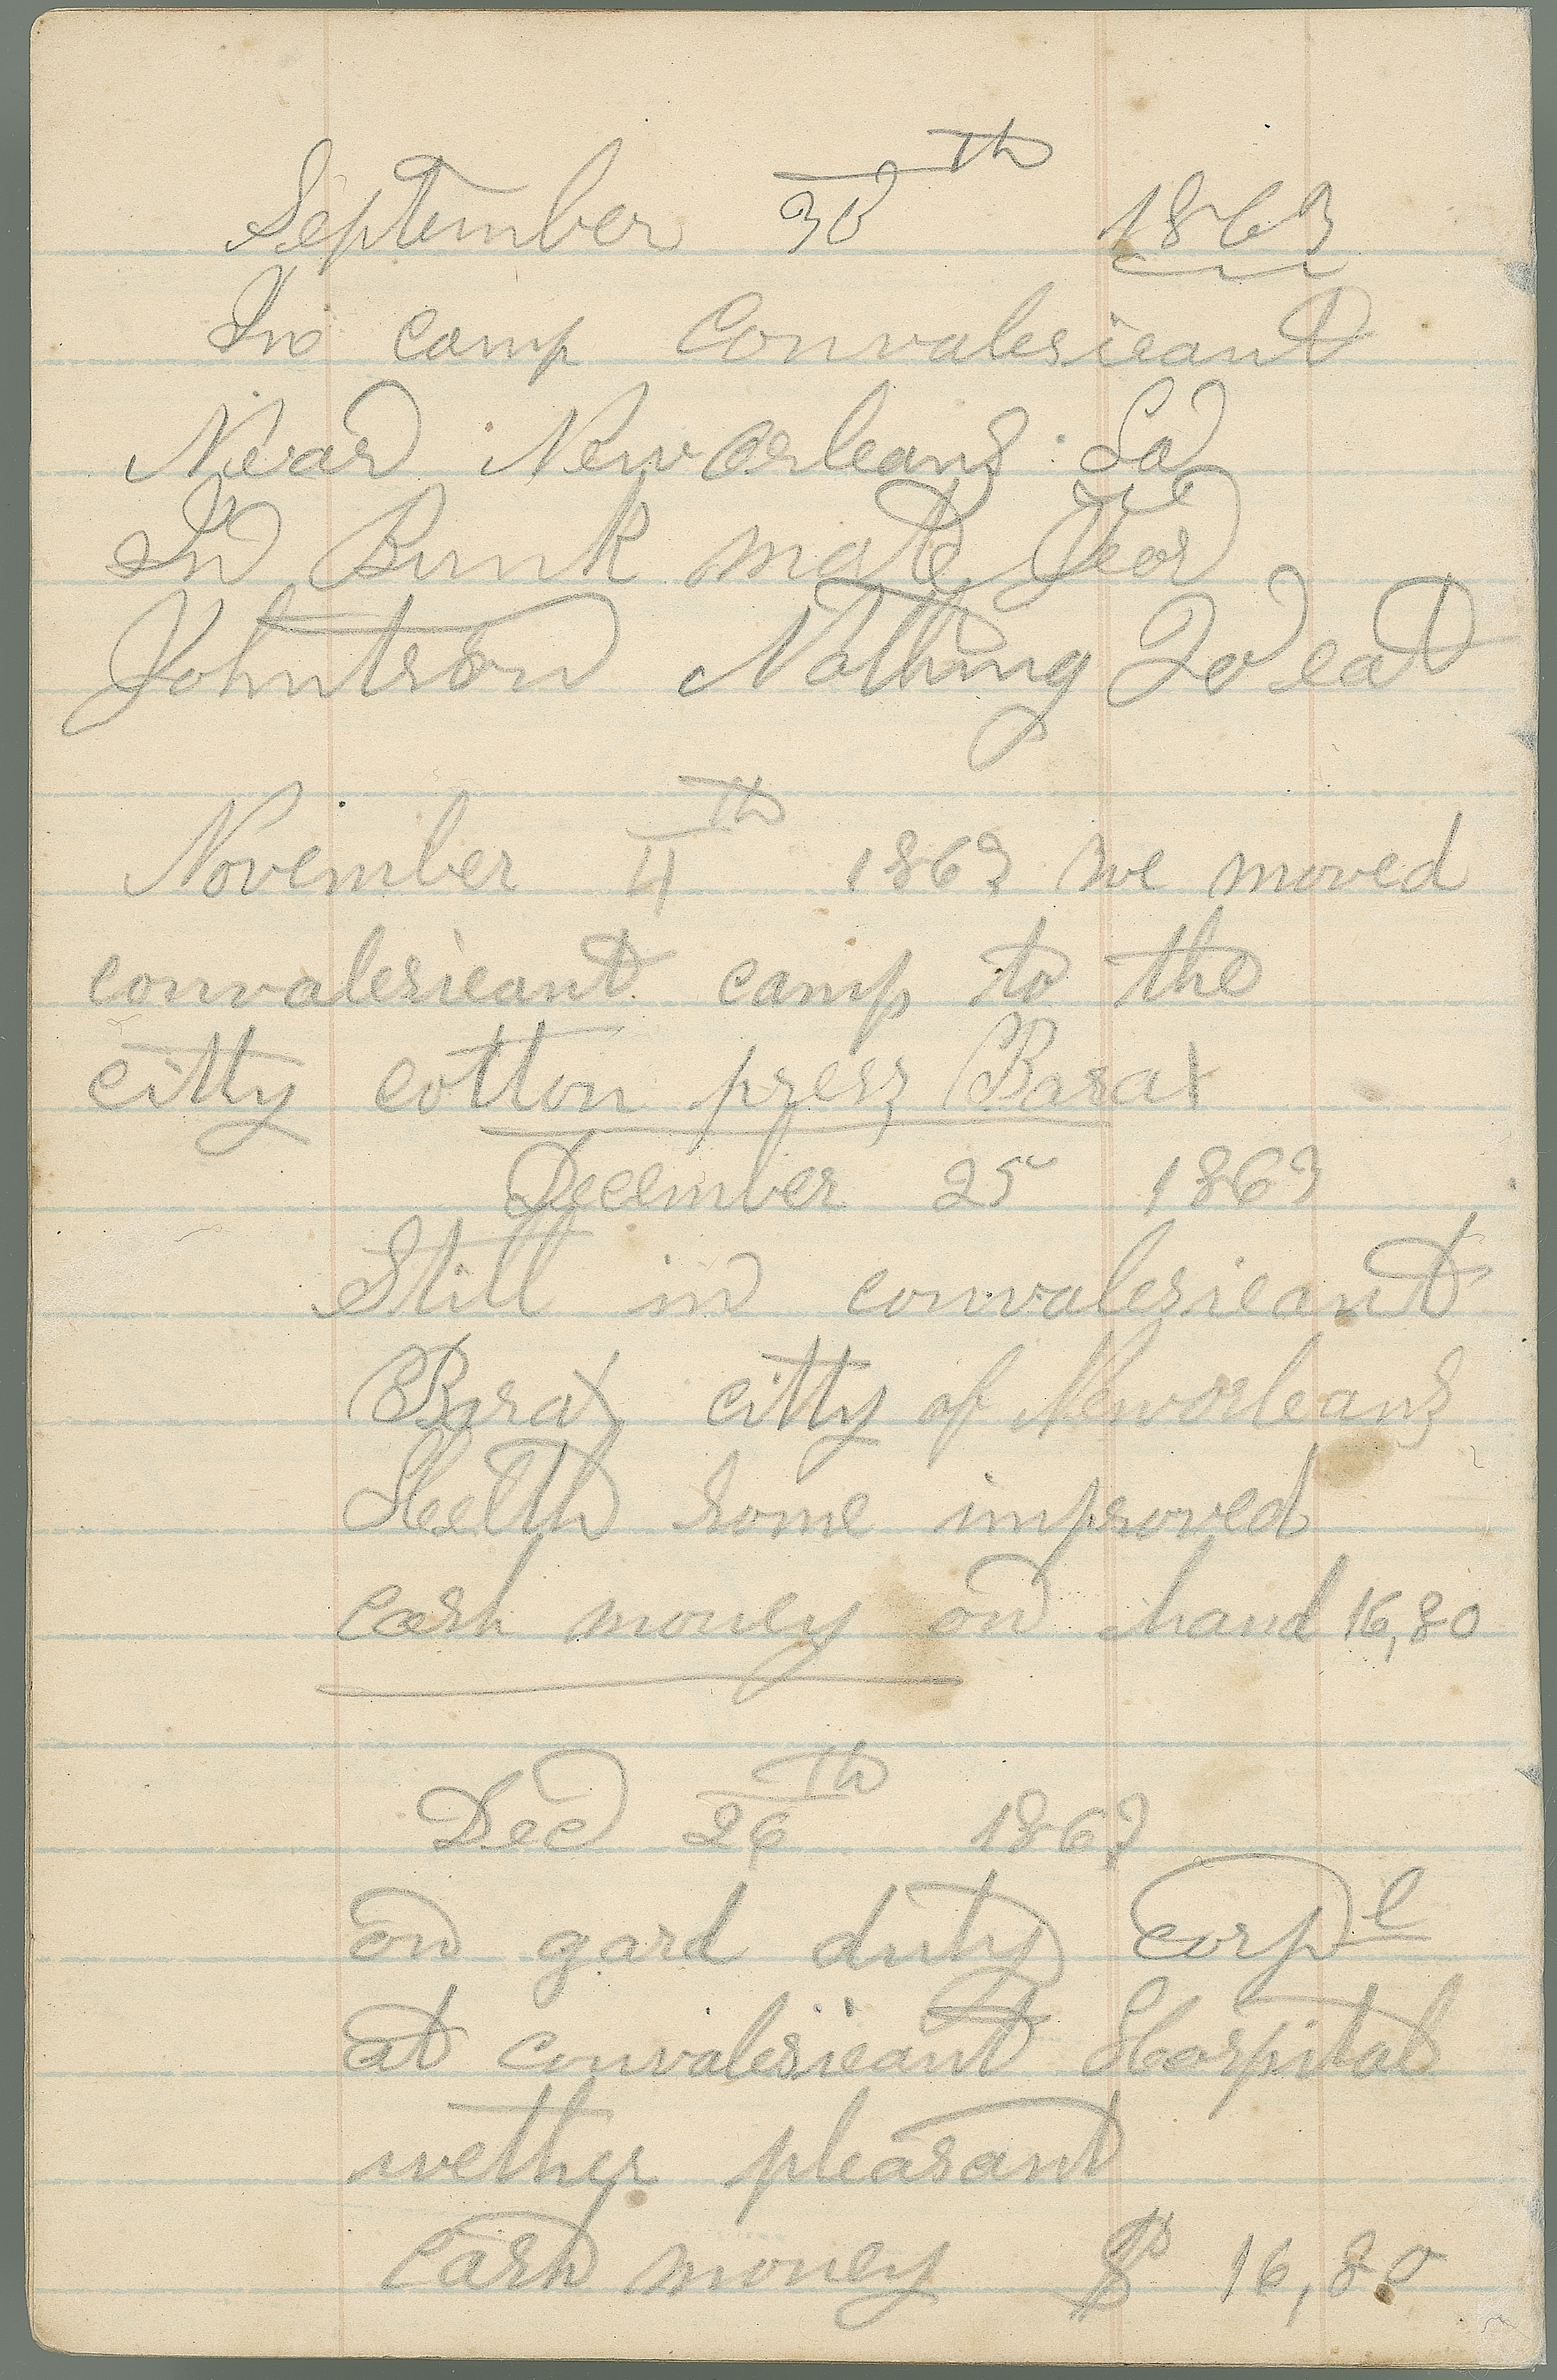 September 30th 1863
In camp Convalesieant
Near New Orleans La
In Bunk mate Geo
Johntson Nothing To eat
November 4th 1863 we moved
convalesieant camp to the
citty cotton press Barax
December 25 1863
Still in convalesieant
Barax citty of Neworleans
Helth some improved
cash money on hand 16,80
Dec 26th 1863
on gard duty corpl
at convalesieant Hospital
wether pleasant
cash money $ 16,80